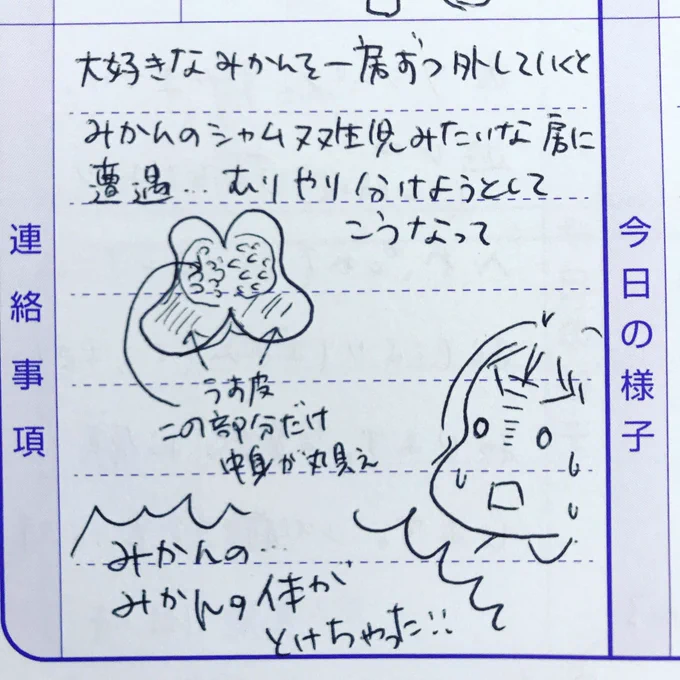 大好きなみかんを一房ずつ外していくと
みかんのシャム双生児みたいな房に
遭遇…むりやり分けようとして
こうなって
うす皮
この部分だけ
中身が丸見え
みかんの…
みかんの体が
とけちゃった!!
連絡事項
今日の様子